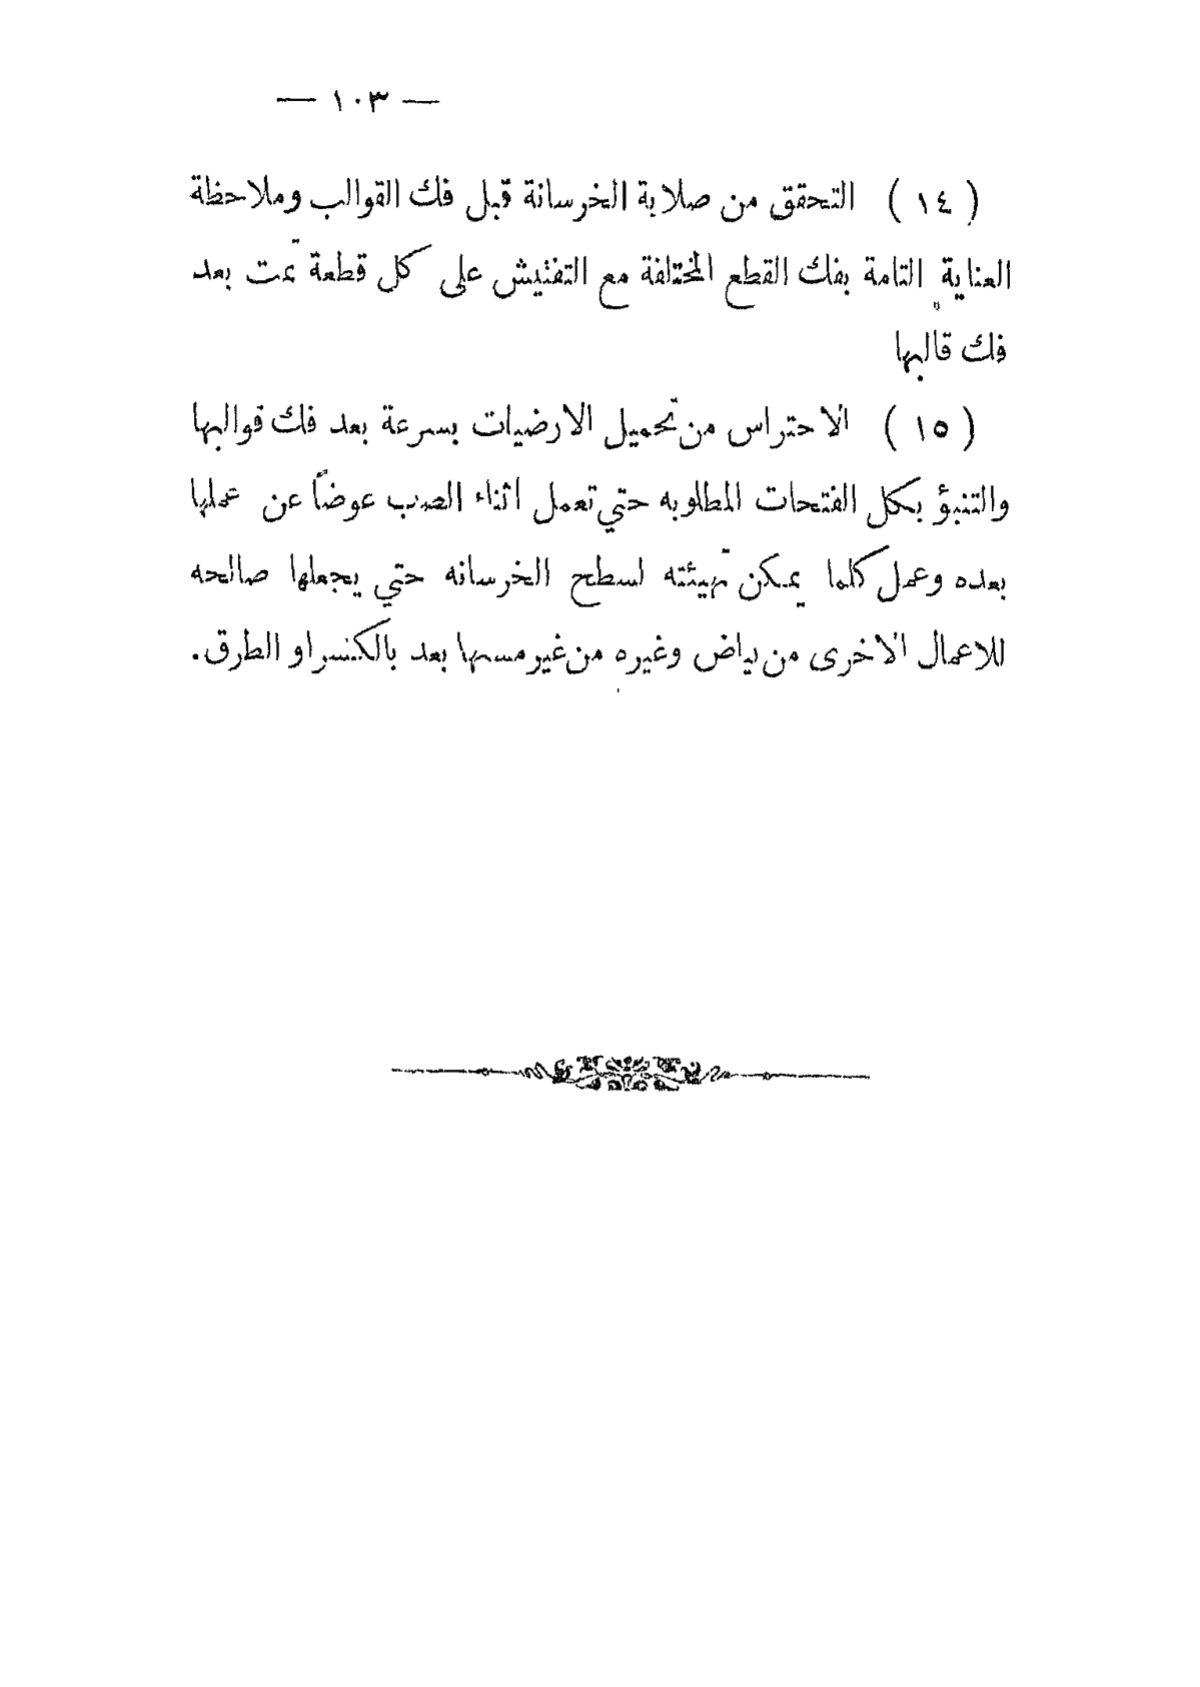 — ١٠٣ —
( ١٤ ) التحقق من صلابة الخرسانة قبل فك القوالب وملاحظة
العناية التامة بفك القطع المختلفة مع التفتيش على كل قطعة تمت بعد
فك قالبها
( ١٥ ) الاحتراس من تحميل الارضيات بسرعة بعد فك قوالبها
والتنبؤ بكل الفتحات المطلوبه حتي تعمل اثناء الصب عوضاً عن عملها
بعده وعمل كلما يمكن تهيئته لسطح الخرسانه حتي يجعلها صالحه
للاعمال الاخرى من بياض وغيره من غير مسها بعد بالكنسر او الطرق.